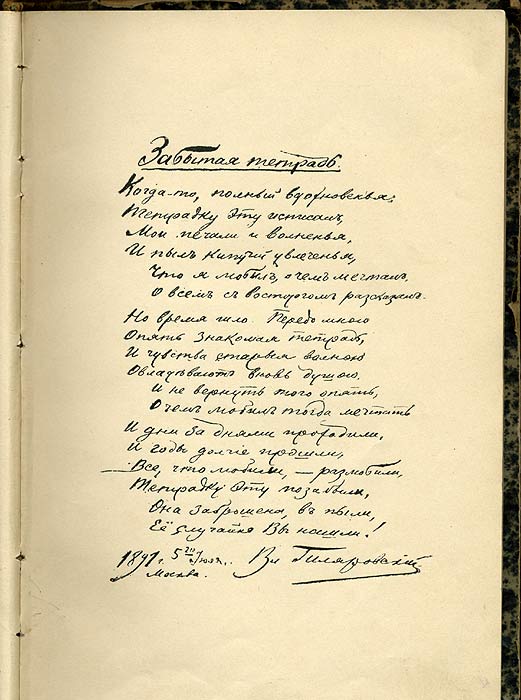 Забытая тетрадь.
Когда-то, полный вдохновенья,
Тетрадку эту исписалъ,
Мои печали и волненья,
И пылъ кипучій увлеченья,
Что я любилъ, о чемъ мечталъ,
О всемъ съ восторгомъ разсказалъ.
Но время шло. Передо мною
Опять знакомая тетрадь,
И чувства старыя волною
Овладѣваютъ вновь душою.
И не вернуть того опять,
О чемъ любилъ тогда мечтать
И дни за днями проходили,
И годы долгіе прошли,
Все, что любили, — разлюбили,
Тетрадку эту позабыли,
Она заброшена, въ пыли,
Её случайно Вы нашли!
1891 г. 5 Июля. Вл Гиляровскій
Москва.